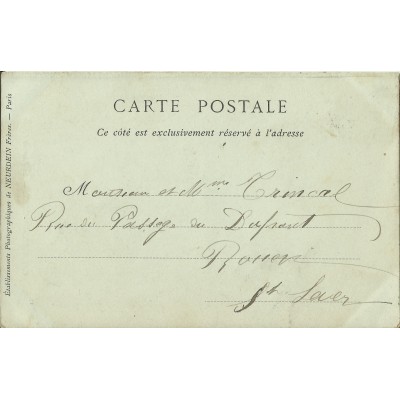 CARTE POSTALE
Ce côté est exclusivement réservé à l'adresse
Monsieur et Mme Trincal
Rue du Passage du
Rouen
St Sever
Établissements Photographiques de NEURDEIN Frères. — Paris